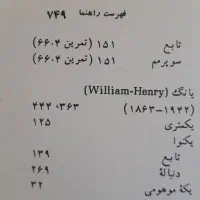 فهرست راهنما ۷۴۹
تابع ۱۵۱ (تمرین ۶۶.۴)
سوپرمم ۱۵۱ (تمرین ۶۶.۴)
یانگ (William-Henry)
(۱۸۶۳-۱۹۴۲) ۳۶۳، ۴۴۴
یکمتری ۱۲۵
یکنوا
تابع ۱۳۹
دنبالهٔ ۲۶۹
یکهٔ موهومی ۳۲